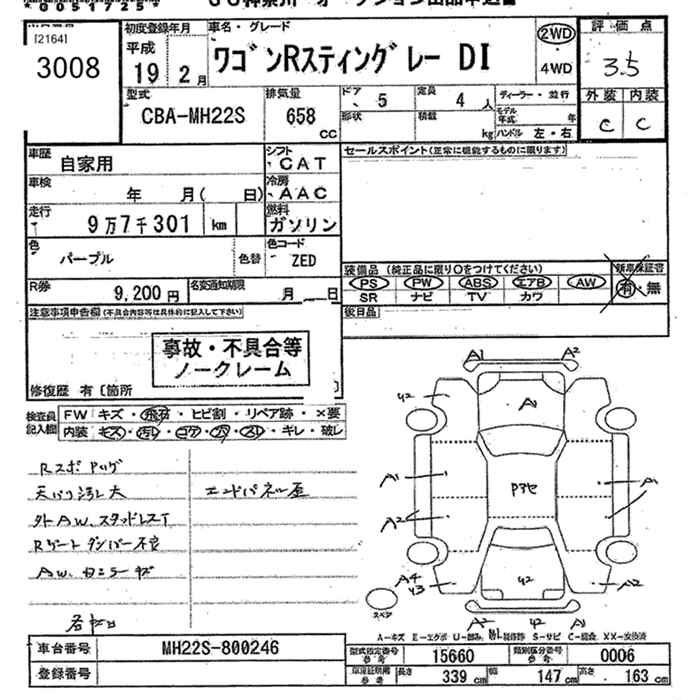 [2164]
3008
初度登録年月
平成
19年 2月
車名・グレード
ワゴンRスティングレー DI
2WD
・
4WD
評価点
3.5
外装 内装
C C
型式
CBA-MH22S
排気量
658 cc
ドア
5
定員
4 人
ディーラー・並行
形状
積載
kg
モデル年式
年
ハンドル 左・右
車歴
自家用
シフト
CAT
セールスポイント(正常に機能するものに限ります)
車検
年 月( 日)
冷房
AAC
走行
9万7千301 km
燃料
ガソリン
色
パープル
色替
色コード
ZED
装備品 (純正品に限り○をつけてください)
新車保証書
PS PW ABS エアB AW
有・無
SR ナビ TV カワ
R券
9,200円
名変通知期限
月 日
後日品
注意事項申告欄(不具合内容等は具体的に記入して下さい)
事故・不具合等
ノークレーム
修復歴 有〔箇所
検査員記入欄
FW キズ・飛石・ヒビ割・リペア跡・×要
内装 キズ・汚れ・コゲ・穴・スレ・キレ・破レ
天バリ汚レ大
エンドパネル歪
外AW、スタッドレスT
Rゲートダンパー不良
A1 A2
A1
A1
A2
Pアセ
A1
A1
A4
A2
スペア
A2
A1
A-キズ E-エクボ U-凹み
S-サビ C-腐食 XX-交換済
車台番号
MH22S-800246
登録番号
型式指定番号
参考
15660
類別区分番号
参考
0006
長さ
339 cm
幅
147 cm
高さ
163 cm